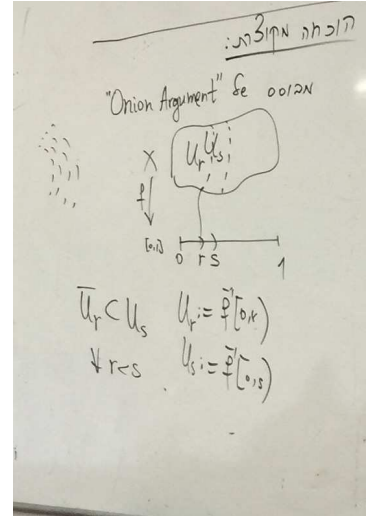 הוכחה מקוצרת:
מבוסס על "Onion Argument"
X U_r U_s
f
[0,1] 0 r s 1
Ū_r ⊂ U_s U_r := f⁻¹[0,r)
∀ r<s U_s := f⁻¹[0,s)